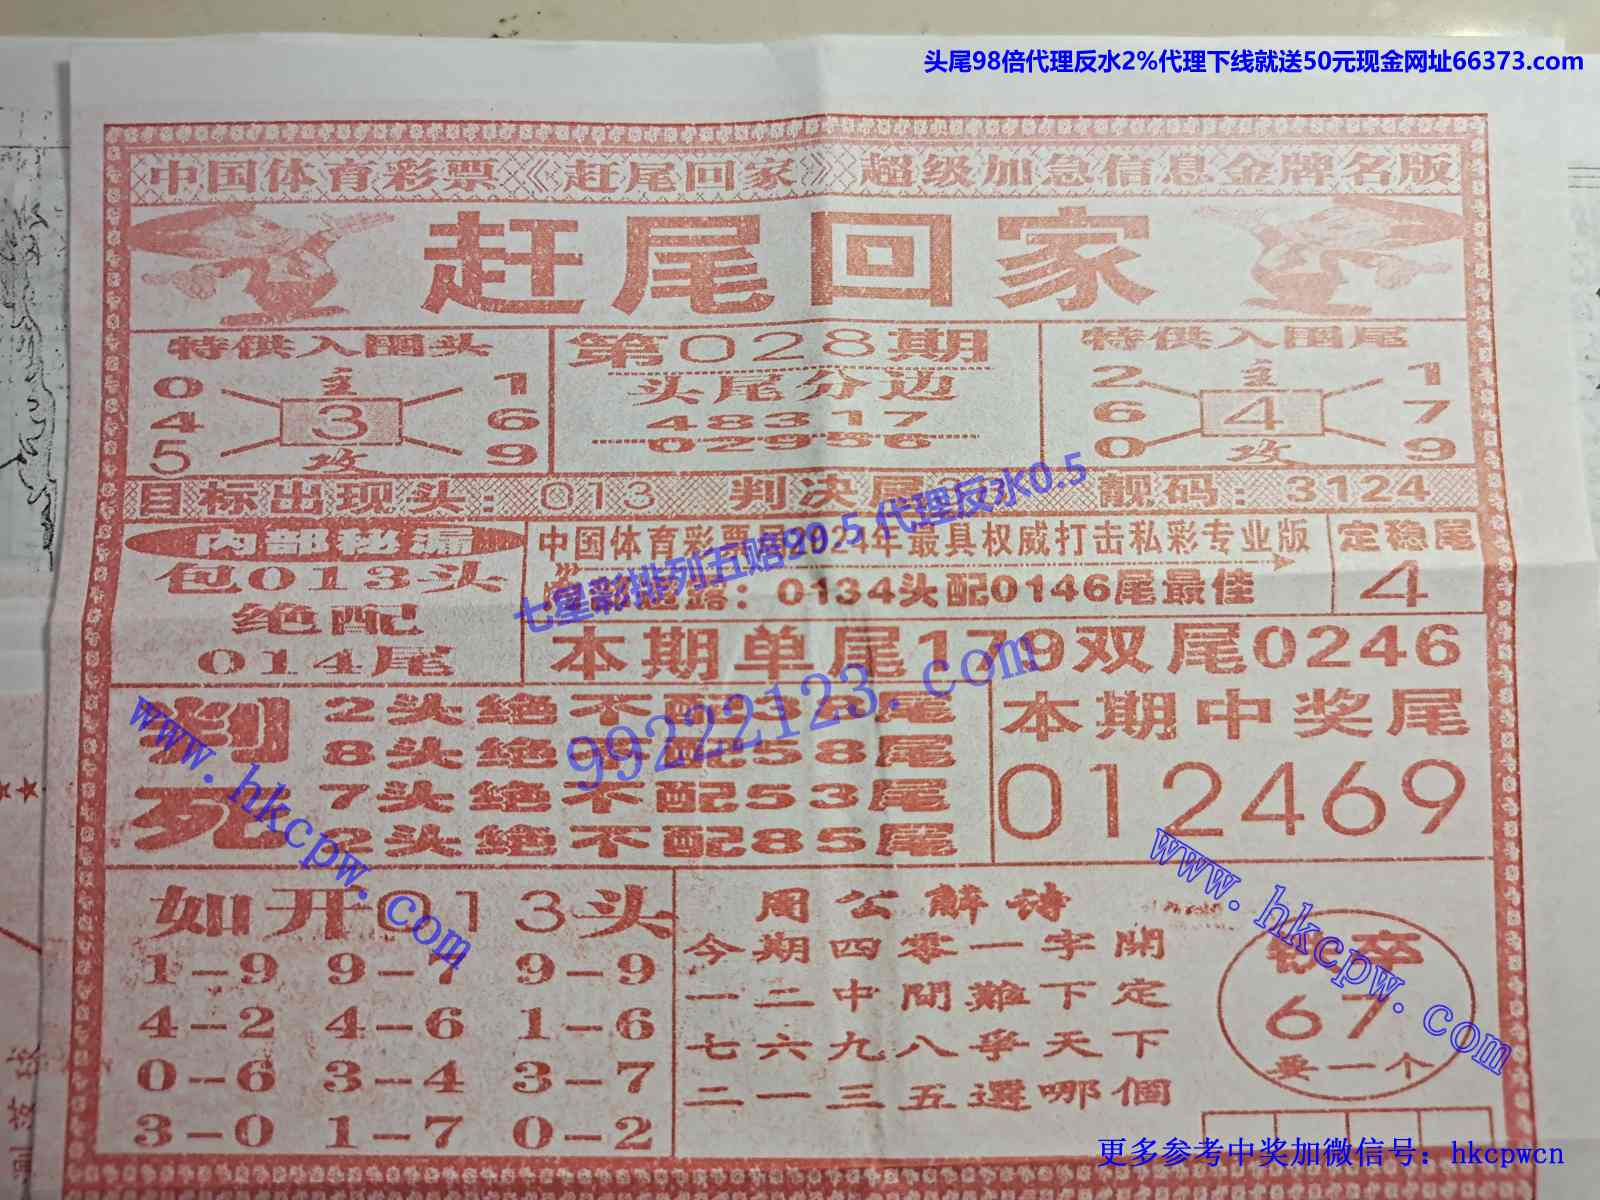 头尾98倍代理反水2%代理下线就送50元现金网址66373.com
中国体育彩票《赶尾回家》超级加急信息金牌名版
赶尾回家
特供入围头
0 主 1
4 3 6
5 攻 9
第028期
头尾分边
48317
02956
特供入围尾
2 主 1
6 4 7
0 攻 9
目标出现头：013 判决尾 靓码：3124
内部秘漏
包013头
绝配
014尾
中国体育彩票局2024年最具权威打击私彩专业版
透露：0134头配0146尾最佳
定稳尾
4
七星彩排列五赔99.5 代理反水0.5
本期单尾179双尾0246
99222123.com
判死
2头绝不配38尾
8头绝不配58尾
7头绝不配53尾
2头绝不配85尾
本期中奖尾
012469
www.hkcpw.com
www.hkcpw.com
如开013头
1-9 9-7 9-9
4-2 4-6 1-6
0-6 3-4 3-7
3-0 1-7 0-2
周公解诗
今期四零一字開
一二中間難下定
七六九八爭天下
二一三五選哪個
67
要一个
更多参考中奖加微信号：hkcpwcn